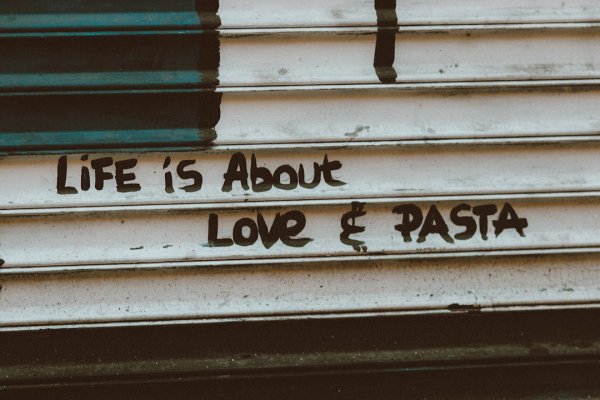 LiFE is About
LOVE & PASTA